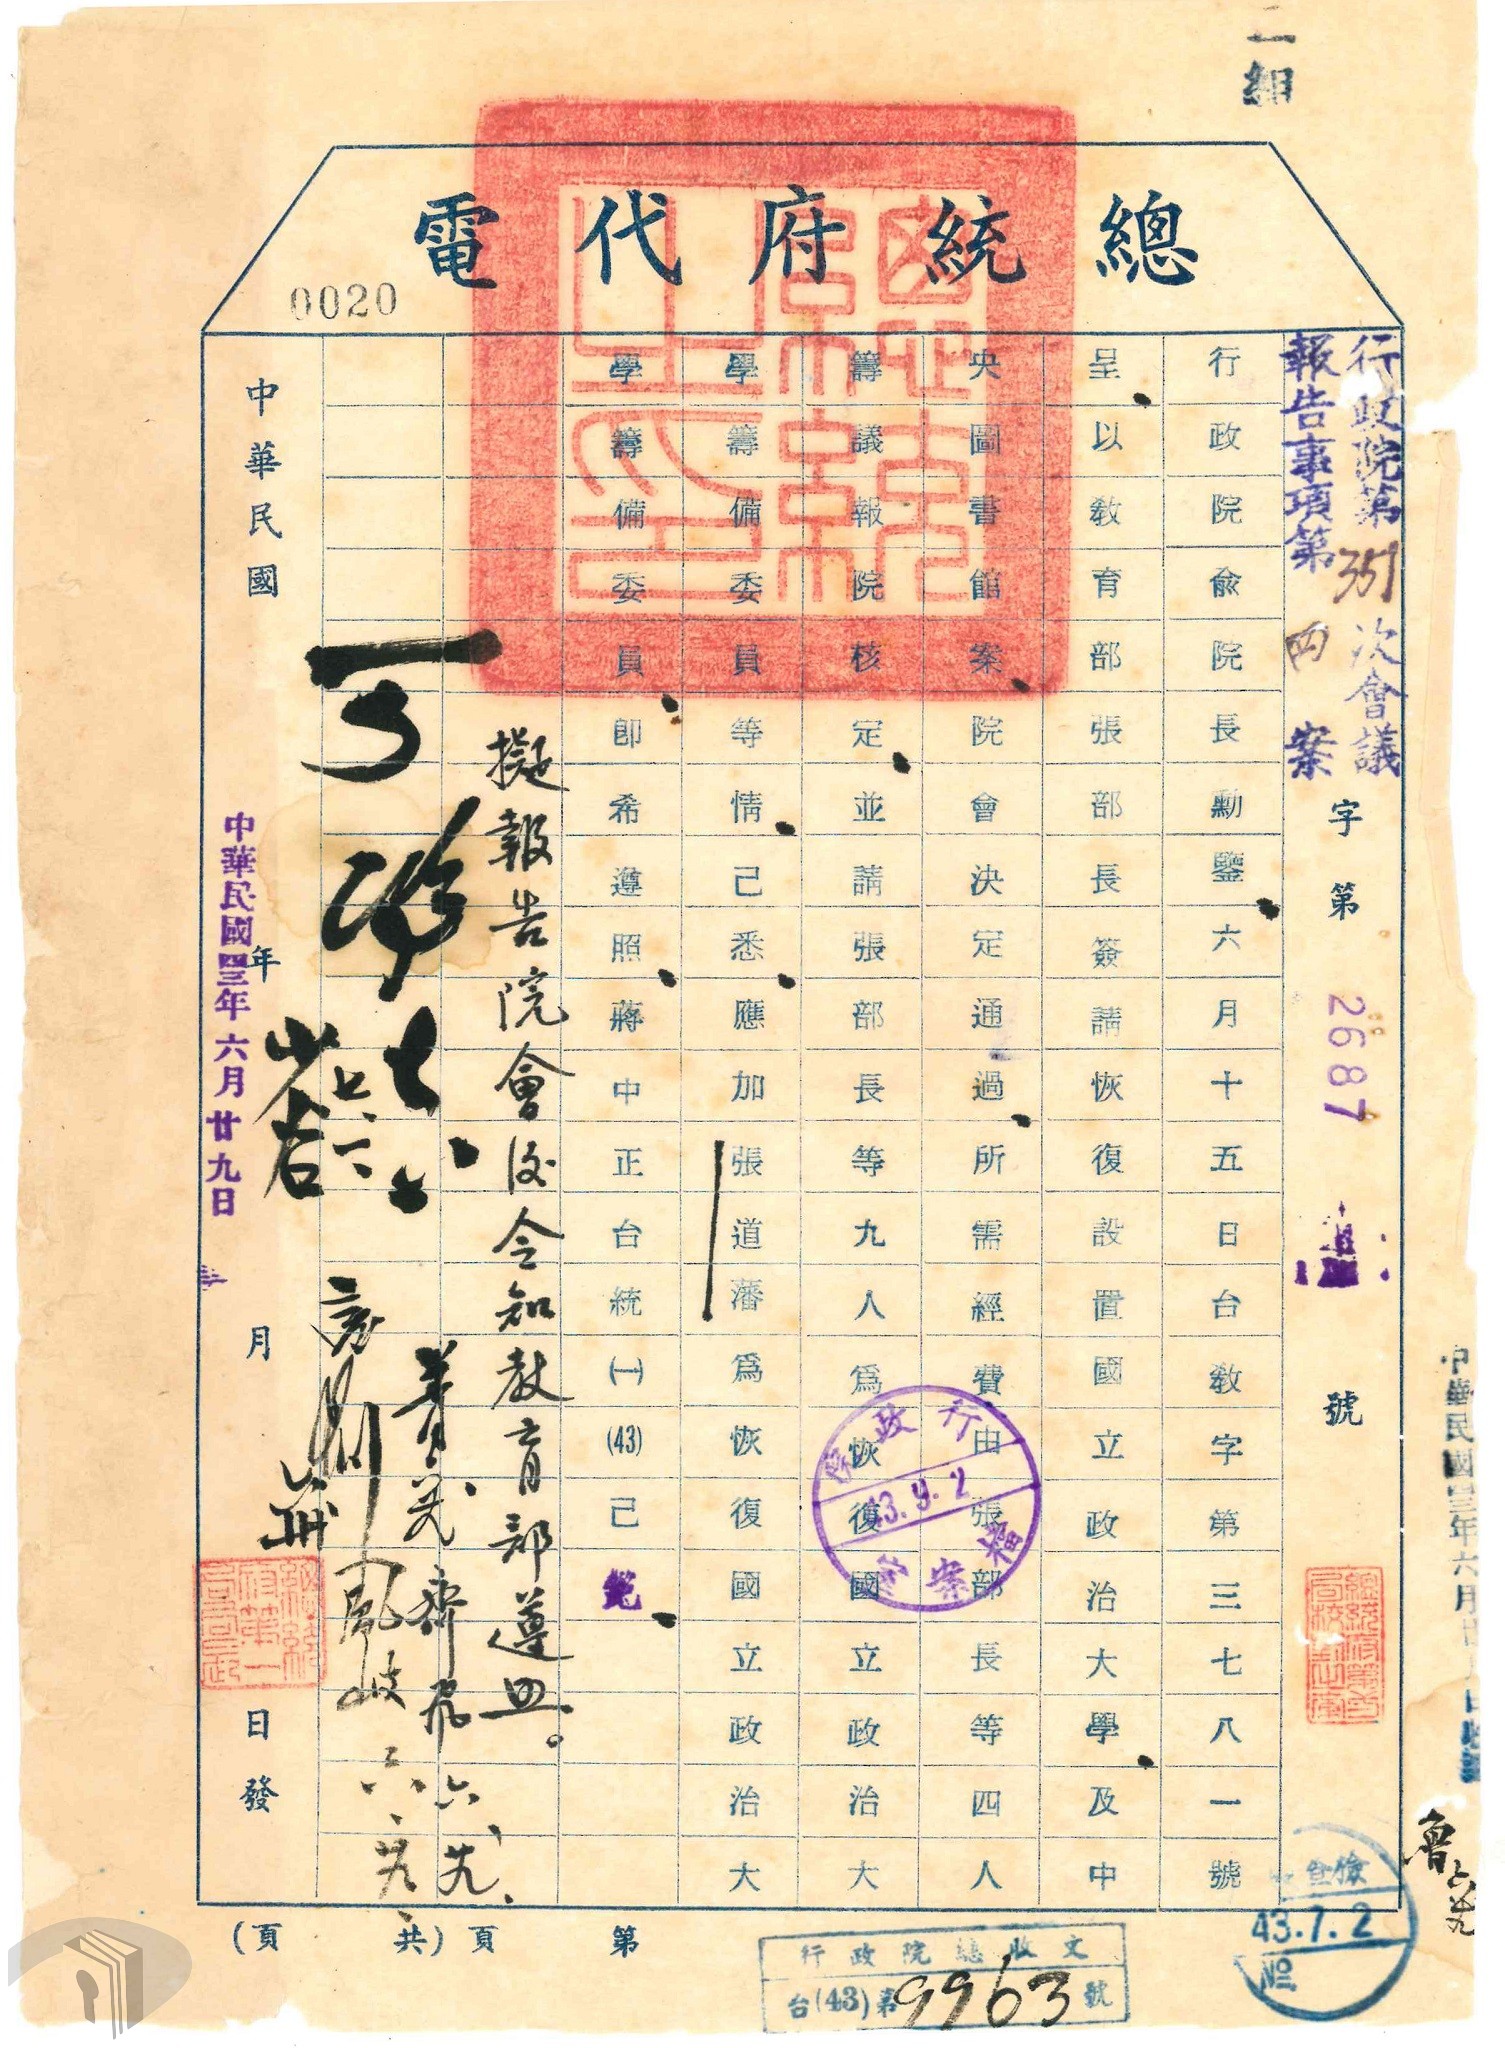 二組
總統府代電
0020
行政院第351次會議
報告事項第四案
字第2687號
行政院俞院長勳鑒六月十五日台教字第三七八一號
呈以教育部張部長簽請恢復設置國立政治大學及中
央圖書館案院會決定通過所需經費由張部長等四人
籌議報院核定並請張部長等九人為恢復國立政治大
學籌備委員等情己悉應加張道藩為恢復國立政治大
學籌備委員即希遵照蔣中正台統㈠(43)己
擬報告院會後令知教育部遵照。
可
六
中華民國 年 月 日發
中華民國四三年六月廿九日
行政院
43.9.2
檔案室
檢查
43.7.2
№
第 頁(共 頁)
行政院總收文
台(43)第9963號